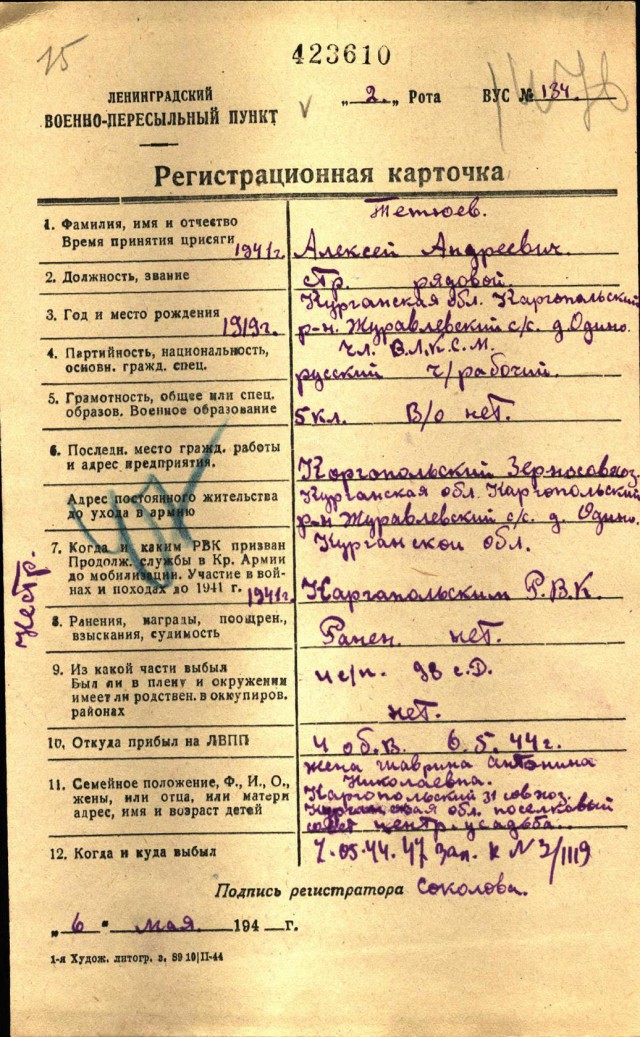 15
423610
ЛЕНИНГРАДСКИЙ
ВОЕННО-ПЕРЕСЫЛЬНЫЙ ПУНКТ
„2.„ Рота ВУС № 134.
Регистрационная карточка
1. Фамилия, имя и отчество
Время принятия присяги 1941г
Тетюев.
Алексей Андреевич.
2. Должность, звание
стр. рядовой.
3. Год и место рождения 1919г.
Курганская обл. Каргопольский
р-н. Журавлевский с/с. д. Одино.
4. Партийность, национальность,
основн. гражд. спец.
Чл. В.Л.К.С.М.
русский ч/рабочий.
5. Грамотность, общее или спец.
образов. Военное образование
5 кл. В/о нет.
6. Последн. место гражд. работы
и адрес предприятия.
Коргопольский Зерносовхоз.
Адрес постоянного жительства
до ухода в армию
Курганская обл. Каргопольский
р-н Журавлевский с/с. д. Одино.
7. Когда и каким РВК призван
Продолж. службы в Кр. Армии
до мобилизации. Участие в вой-
нах и походах до 1941 г. 1941г.
Курганской обл.
Каргопольским Р.В.К.
Нестр.
8. Ранения, награды, поощрен.,
взыскания, судимость
Ранен. нет.
9. Из какой части выбыл
Был ли в плену и окружении
имеет ли родствен. в оккупиров.
районах
98 с.Д.
нет.
10. Откуда прибыл на ЛВПП
4 об.В. 6.5.44г.
11. Семейное положение, Ф., И., О.,
жены, или отца, или матери
адрес, имя и возраст детей
жена Шаврина Антонина
Николаевна.
Каргопольский 31 совхоз.
Курганская обл. поселковый
совет центр. усадьба.
12. Когда и куда выбыл
7.05.44. 47 Зап. к N 3/1119
Подпись регистратора Соколова.
„6" мая 194 г.
1-я Худож. литогр. з. 8910|II-44